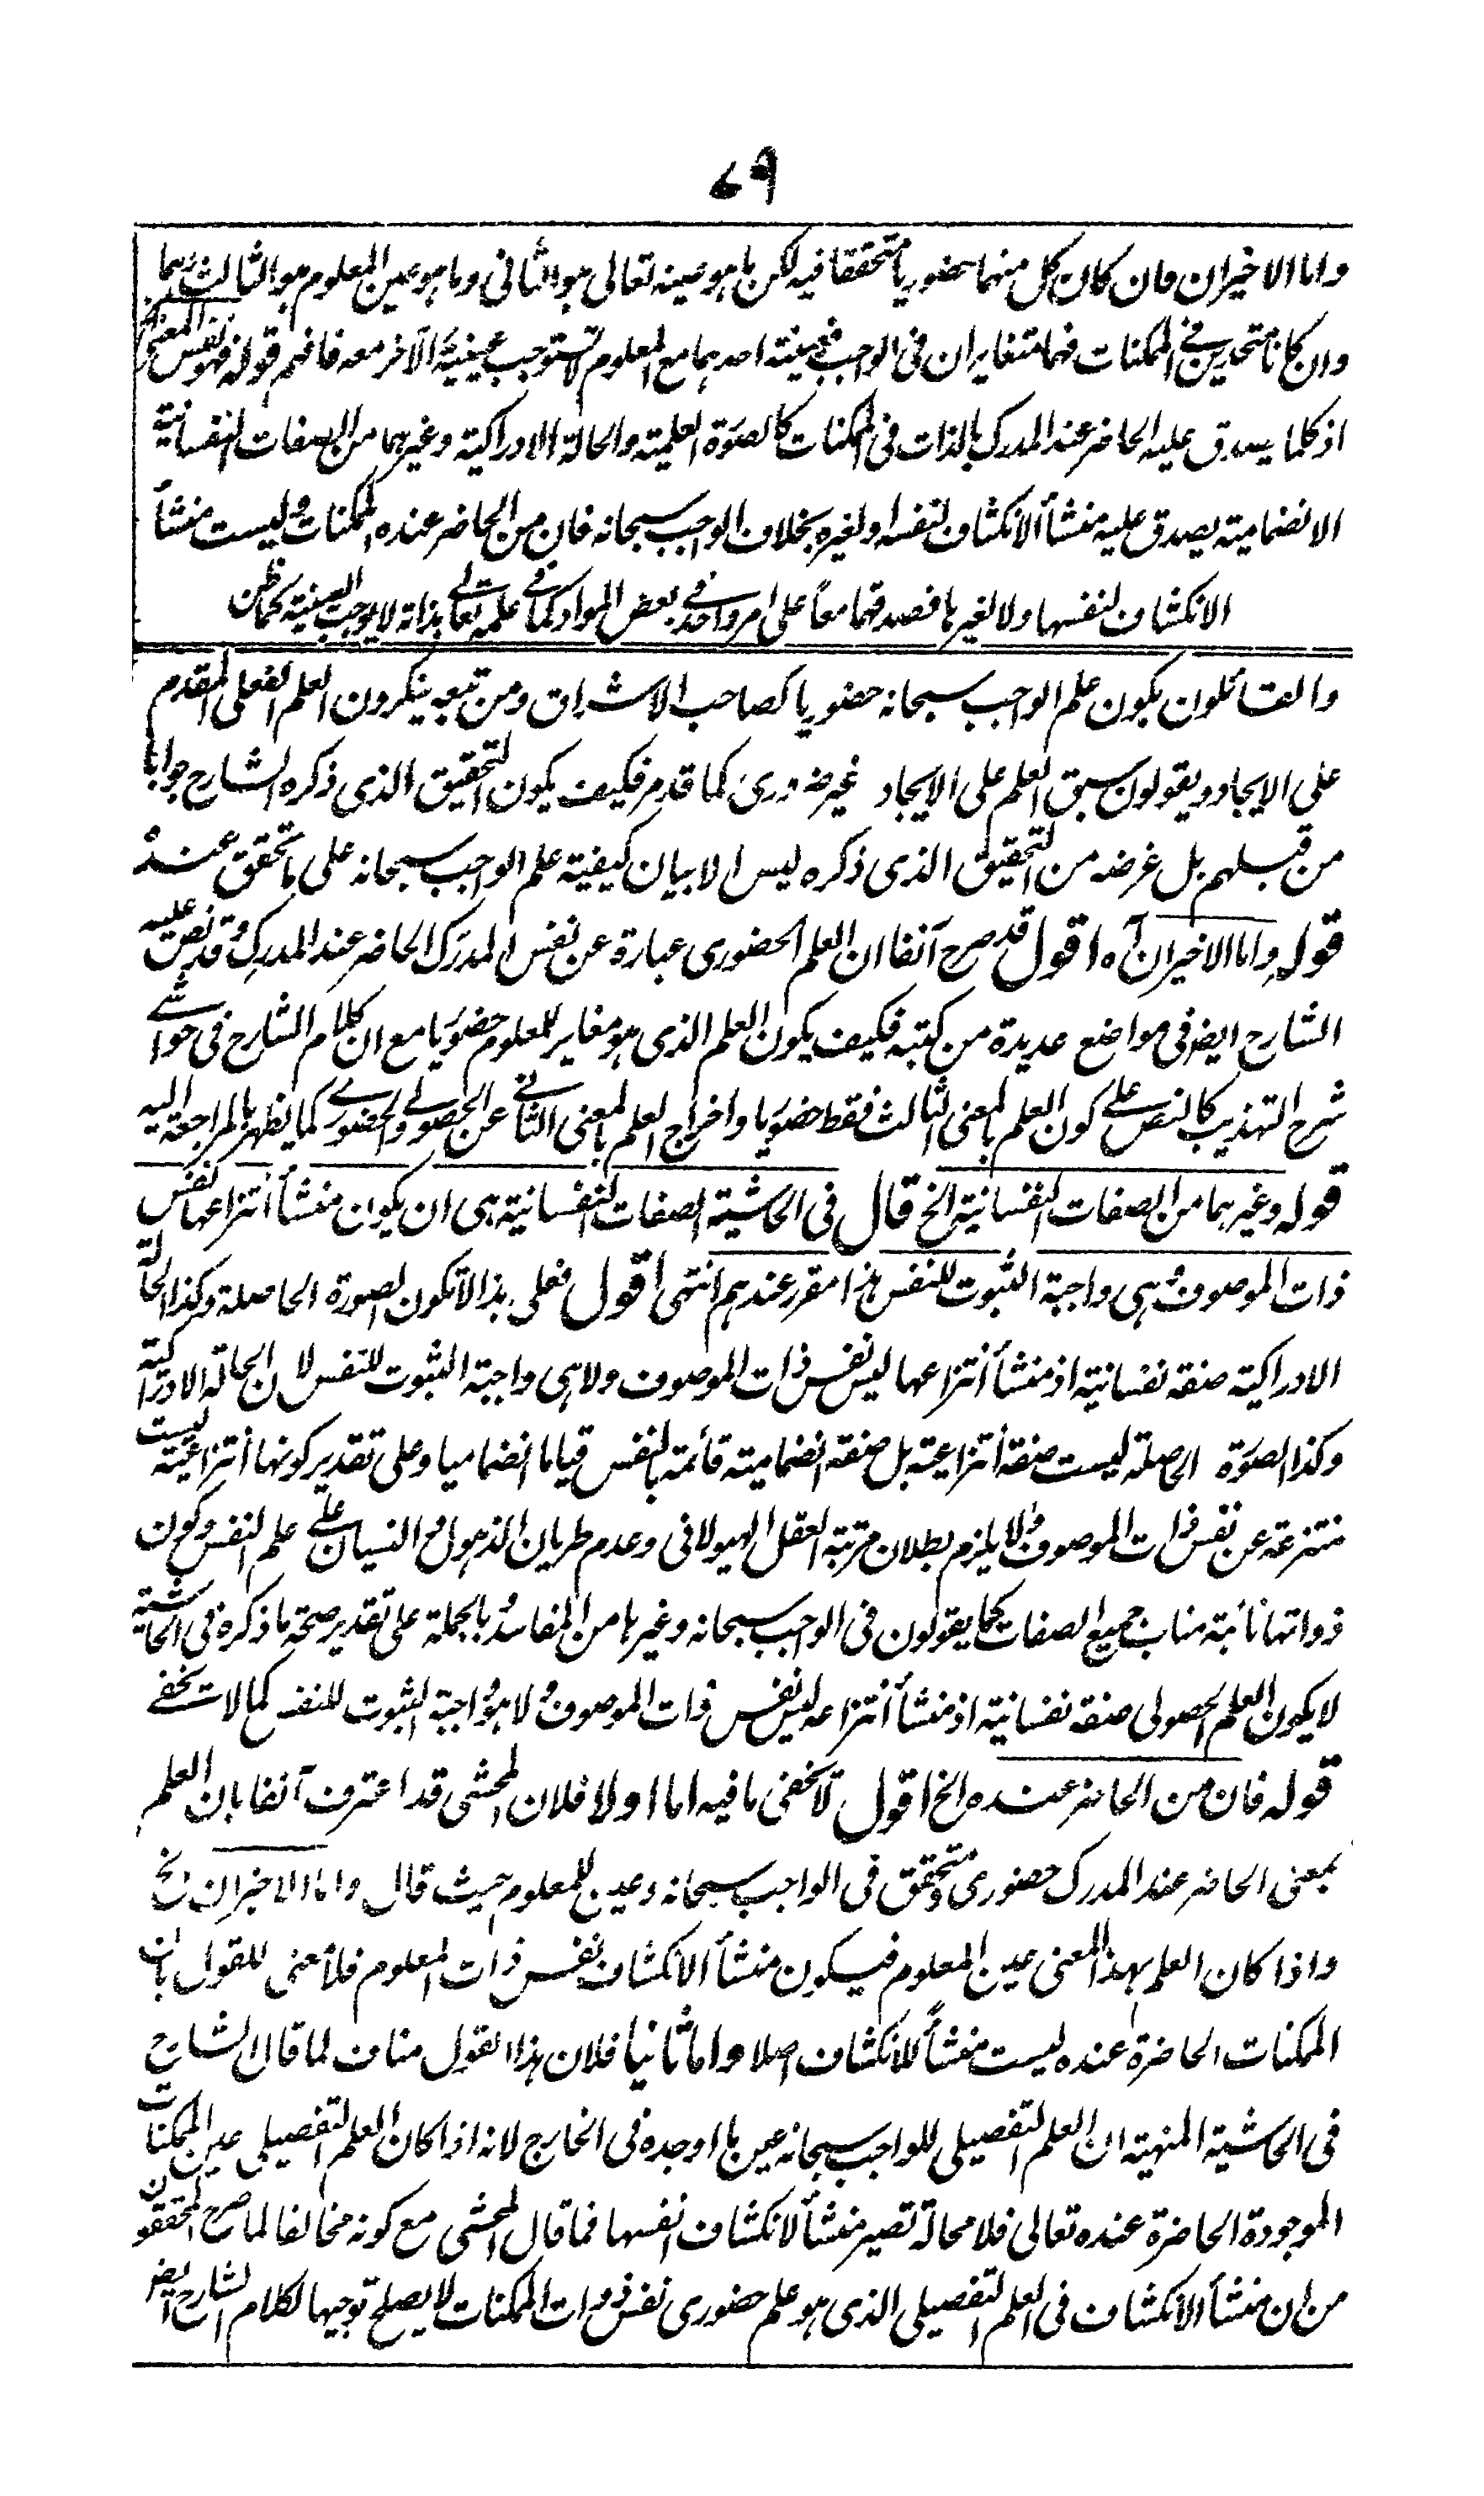 ٧٩
واما الاخيران فان كان كل منهما حضوريا متحققا فيه لكن ما هو عينه تعالى هو الثانى وما هو عين المعلوم هو الثالث وهما
وان كانا متحدين فى الممكنات فهما متغايران فى الواجب فعينية احدهما مع المعلوم لا تستوجب عينية الآخر معه فافهم قوله فهو نفس المعنى
اذ كلما يصدق عليه الحاضر عند المدرك بالذات فى الممكنات كالصورة العلمية والحالة الادراكية وغيرهما من الصفات النفسانية
الانضمامية يصدق عليه منشأ الانكشاف لنفسه او لغيره بخلاف الواجب سبحانه فان من الحاضر عنده الممكنات وليست منشأ
الانكشاف لنفسها ولا لغيرها فصدقهما معاً على امر واحد فى بعض المواد كما فى علمه تعالى بذاته لا يوجب العينية كما ظن
والقائلون بكون علم الواجب سبحانه حضوريا كصاحب الاشراق ومن تبعه ينكرون العلم الفعلى المقدم
على الايجاد ويقولون سبق العلم على الايجاد غير ضرورى كما قد مر فكيف يكون التحقيق الذى ذكره الشارح جوابا
من قبلهم بل غرضه من التحقيق الذى ذكره ليس الا بيان كيفية علم الواجب سبحانه على ما تحقق عنده
قوله واما الاخيران آه اقول قد صرح آنفا ان العلم الحضورى عبارة عن نفس المدرَك الحاضر عند المدرِك وقد نص عليه
الشارح ايضا فى مواضع عديدة من كتبه فكيف يكون العلم الذى هو مغاير للمعلوم حضوريا مع ان كلام الشارح فى حواشى
شرح التهذيب كالنص على كون العلم بالمعنى الثالث فقط حضوريا واخراج العلم بالمعنى الثانى عن الحصولى والحضورى كما يظهر بالمراجعة اليه
قوله وغيرهما من الصفات النفسانية الخ قال فى الحاشية الصفات النفسانية هى ان يكون منشأ انتزاعها نفس
ذات الموصوف وهى واجبة الثبوت للنفس هذا مقرر عندهم انتهى اقول فعلى هذا لا تكون الصورة الحاصلة وكذا الحالة
الادراكية صفة نفسانية اذ منشأ انتزاعها ليس نفس ذات الموصوف ولا هى واجبة الثبوت للنفس لان الحالة الادراكية
وكذا الصورة الحاصلة ليست صفة انتزاعية بل صفة انضمامية قائمة بالنفس قياما انضماميا وعلى تقدير كونها انتزاعية ليست
منتزعة عن نفس ذات الموصوف والا يلزم بطلان مرتبة العقل الهيولانى وعدم طريان الذهول والنسيان على علم النفس وكون
ذواتها نائبة مناب جميع الصفات كما يقولون فى الواجب سبحانه وغيرها من المفاسد وبالجملة على تقدير صحة ما ذكره فى الحاشية
لا يكون العلم الحصولى صفة نفسانية اذ منشأ انتزاعه ليس نفس ذات الموصوف ولا هو واجبة الثبوت للنفس كما لا تخفى
قوله فان من الحاضر عنده الخ اقول لا يخفى ما فيه اما اولا فلان المحشى قد اعترف آنفا بان العلم
بمعنى الحاضر عند المدرك حضورى ومتحقق فى الواجب سبحانه وعين للمعلوم حيث قال واما الاخيران الخ
واذا كان العلم بهذا المعنى عين المعلوم فيكون منشأ الانكشاف نفس ذات المعلوم فلا معنى للقول بان
الممكنات الحاضرة عنده ليست منشأً للانكشاف اصلا واما ثانيا فلان هذا القول مناف لما قال الشارح
فى الحاشية المنهية ان العلم التفصيلى للواجب سبحانه عين ما اوجده فى الخارج لانه اذا كان العلم التفصيلى عين الممكنات
الموجودة الحاضرة عنده تعالى فلا محالة تصير منشأ لانكشاف انفسها فما قال المحشى مع كونه مخالفا لما صرح المحققون
من ان منشأ الانكشاف فى العلم التفصيلى الذى هو علم حضورى نفس ذوات الممكنات لا يصلح توجيها لكلام الشارح ايضا